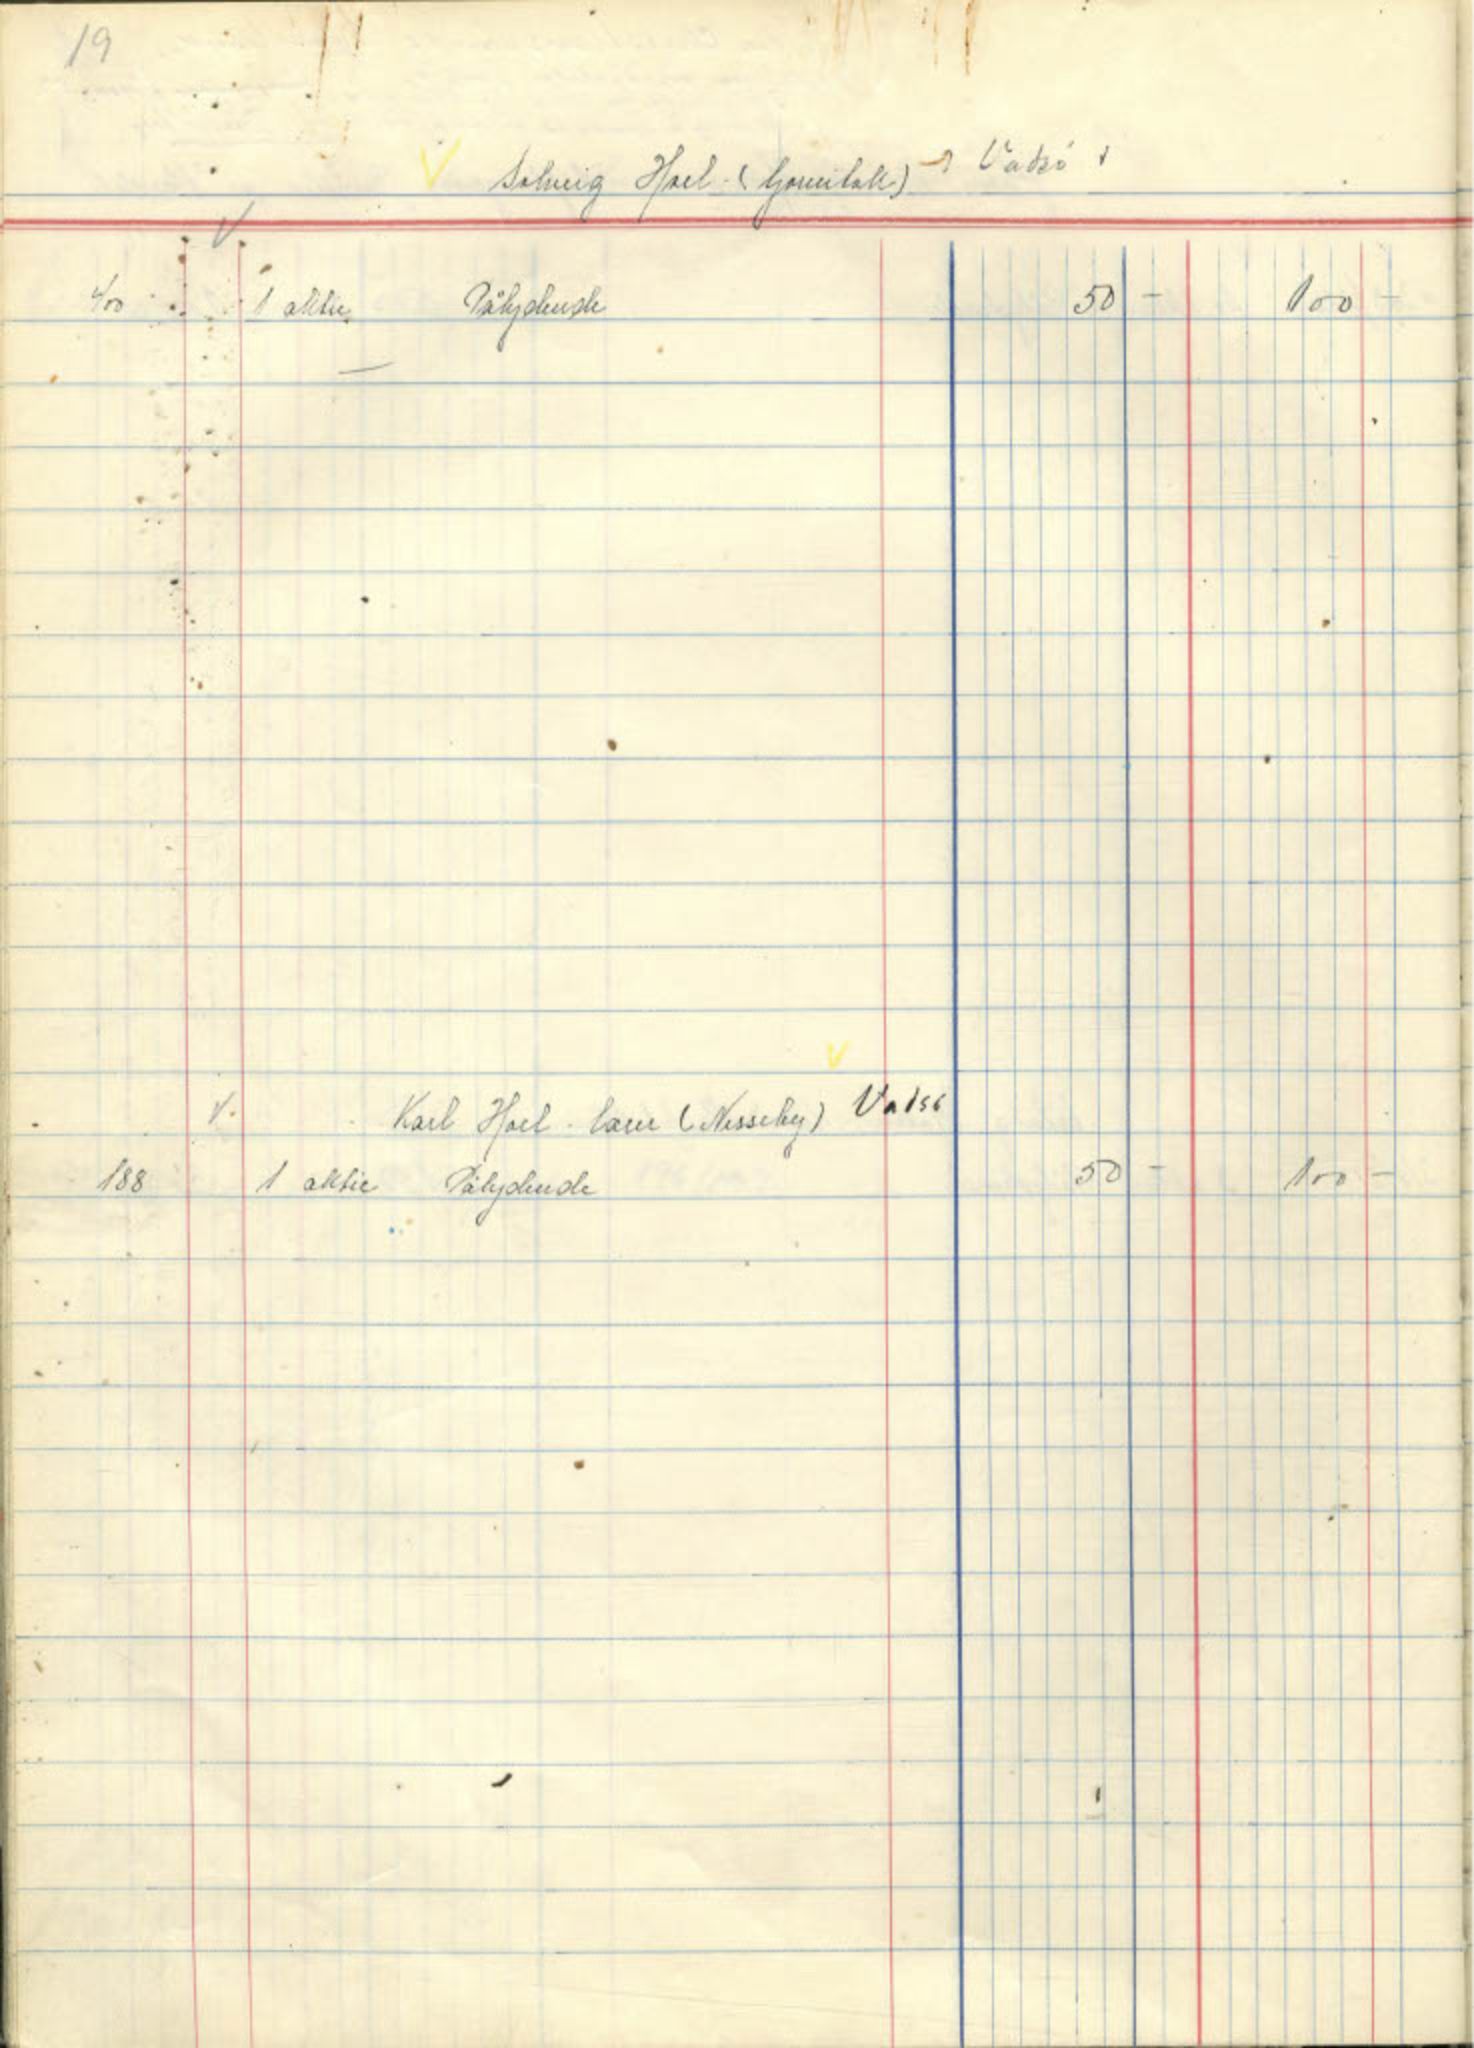 19
Solveig Hoel. ( ) Vadsö
400 1 aktie Pålydende 50 - 100 -
Karl Hoel. (Nesseby) Vadsö
188 1 aktie Pålydende 50 - 100 -